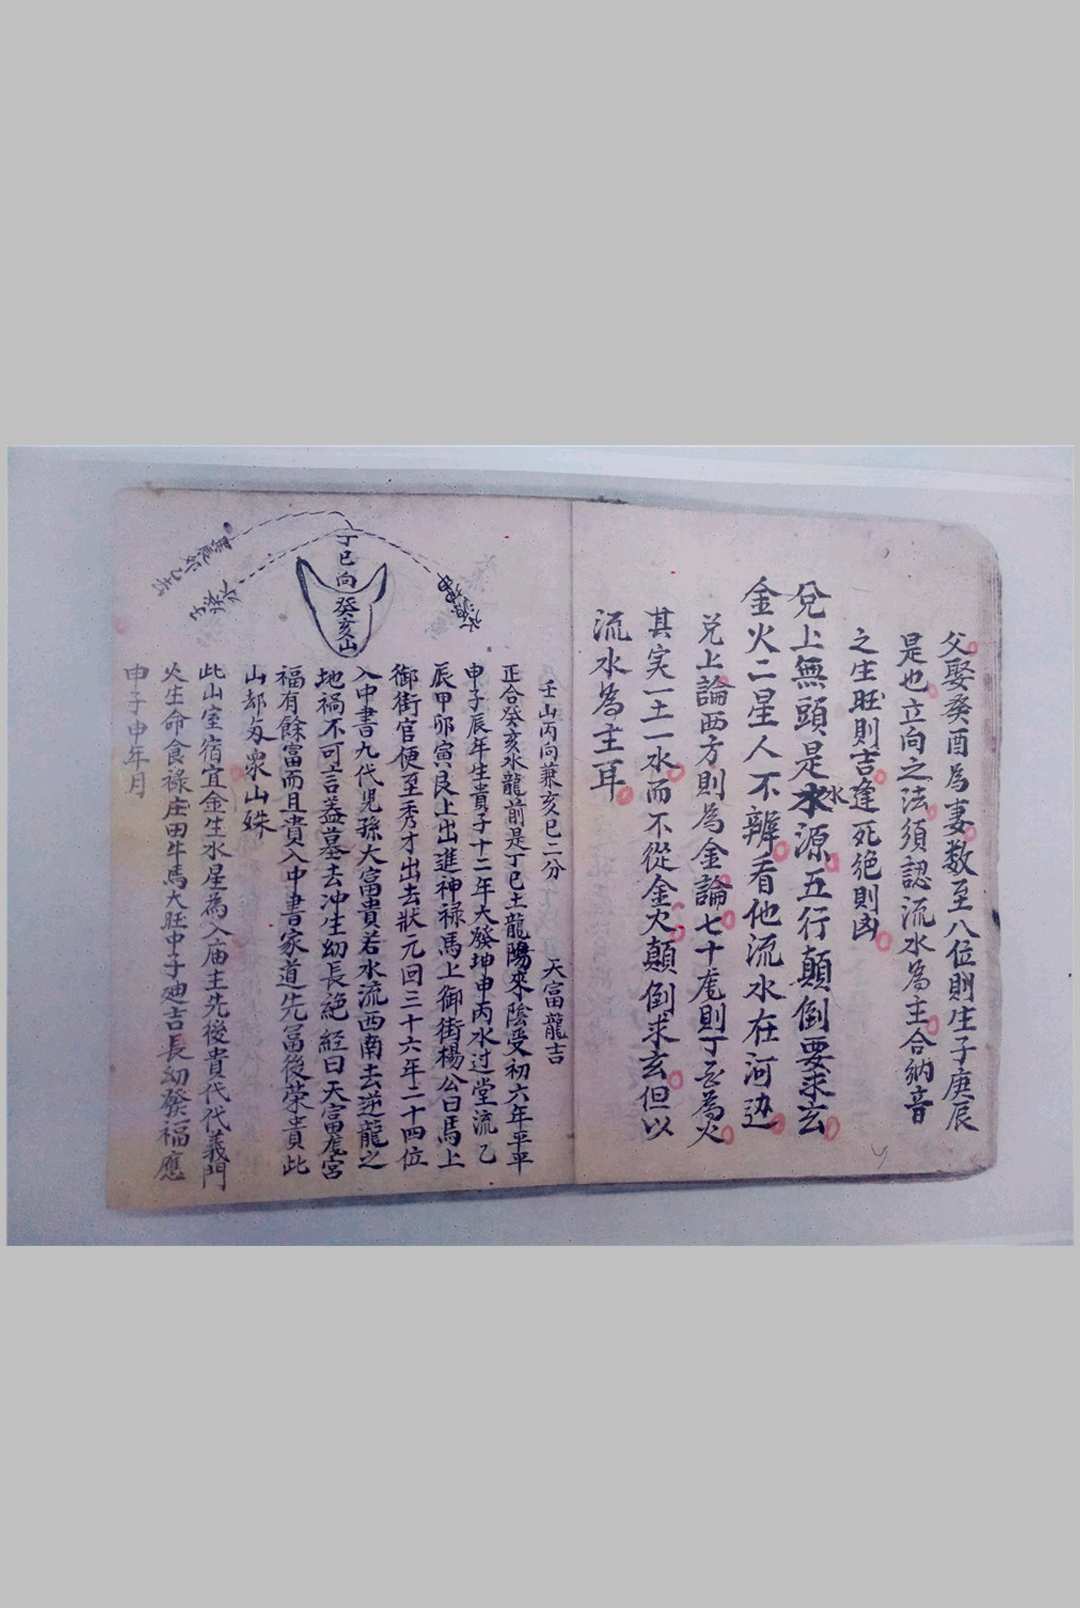 父娶癸酉為妻数至八位則生子庚辰
是也立向之法須認流水為主合納音
之生旺則吉逢死绝則凶
兌上無頭是水源五行顛倒要求玄
水
金火二星人不辨看他流水在河边
兑上論西方則為金論七十龙則丁巳為火
其实一土一水而不從金火顛倒求玄但以
流水為主耳
丁巳向
癸亥山
壬山丙向兼亥巳二分 天富龍吉
正合癸亥水龍前是丁巳土龍陽來陰受初六年平平
申子辰年生貴子十二年大發坤申丙水过堂流乙
辰甲卯寅艮上出進神禄馬上御街楊公曰馬上
御街官便至秀才出去狀元回三十六年二十四位
入中書九代児孫大富貴若水流西南去逆龍之
地禍不可言盖墓去冲生幼長絶經曰天富龙宮
福有餘富而且貴入中書家道先冨後荣貴此
山却与衆山殊
此山室宿宜金生水星為入庙主先後貴代代義門
火生命食祿庄田牛馬大旺中子廻吉長幼發福應
申子申年月